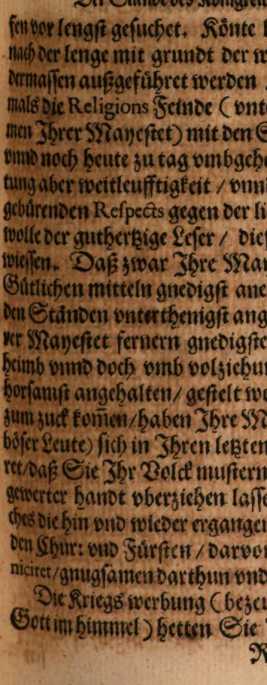 Der Stände des Königreich
sen vor lengst gesuchet. Könte
nach der lenge mit grundt der w
dermassen außgeführet werden
mals die Religions Feinde ( vnte
men Ihrer Mayestet) mit den S
vnnd noch heute zu tag vmbgehe
tung aber weitleufftigkeit / vnn
gebürenden Respects gegen der li
wolle der guthertzige Leser / die
wissen. Daß zwar Ihre Ma
Gütlichen mitteln gnedigst ane
den Ständen vnterthenigst ang
Mayestet fernern gnedigste
heimb vnnd doch vmb volziehun
horsamst angehalten/ gestelt we
zum zuck kom̄en/haben Ihre M
böser Leute) sich in Ihren letzten
ret/daß Sie Ihr Volck mustern
gewerter handt vberziehen lasse
ches die hin vnd wieder ergangen
den Chur: vnd Fürsten / darvon
nicitet/gnugsamen darthun vnd
Die Kriegs werbung ( bezeu
Gott im himmel ) hetten Sie